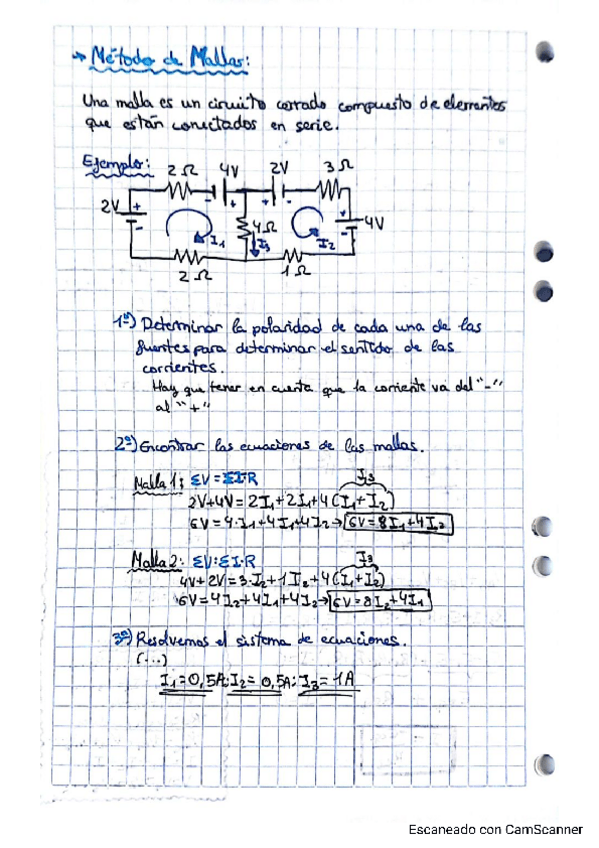 → Método de Mallas:
Una malla es un circuito cerrado compuesto de elementos
que están conectados en serie.
Ejemplo:
2Ω 4V 2V 3Ω
2V + - + + - + -4V
- I₁ 4Ω I₃ I₂ -
2Ω 1Ω
1º) Determinar la polaridad de cada una de las
fuentes para determinar el sentido de las
corrientes.
Hay que tener en cuenta que la corriente va del "-"
al "+"
2º) Encontrar las ecuaciones de las mallas.
Malla 1: ΣV = ΣI·R I₃
2V+4V = 2I₁+2I₁+4(I₁+I₂)
6V = 4·I₁+4I₁+4I₂ → 6V = 8I₁+4I₂
Malla 2: ΣV=ΣI·R I₃
4V+2V = 3·I₂+1I₂+4(I₁+I₂)
6V = 4I₂+4I₁+4I₂ → 6V = 8I₂+4I₁
3º) Resolvemos el sistema de ecuaciones.
(...)
I₁=0,5A; I₂=0,5A; I₃=1A
Escaneado con CamScanner